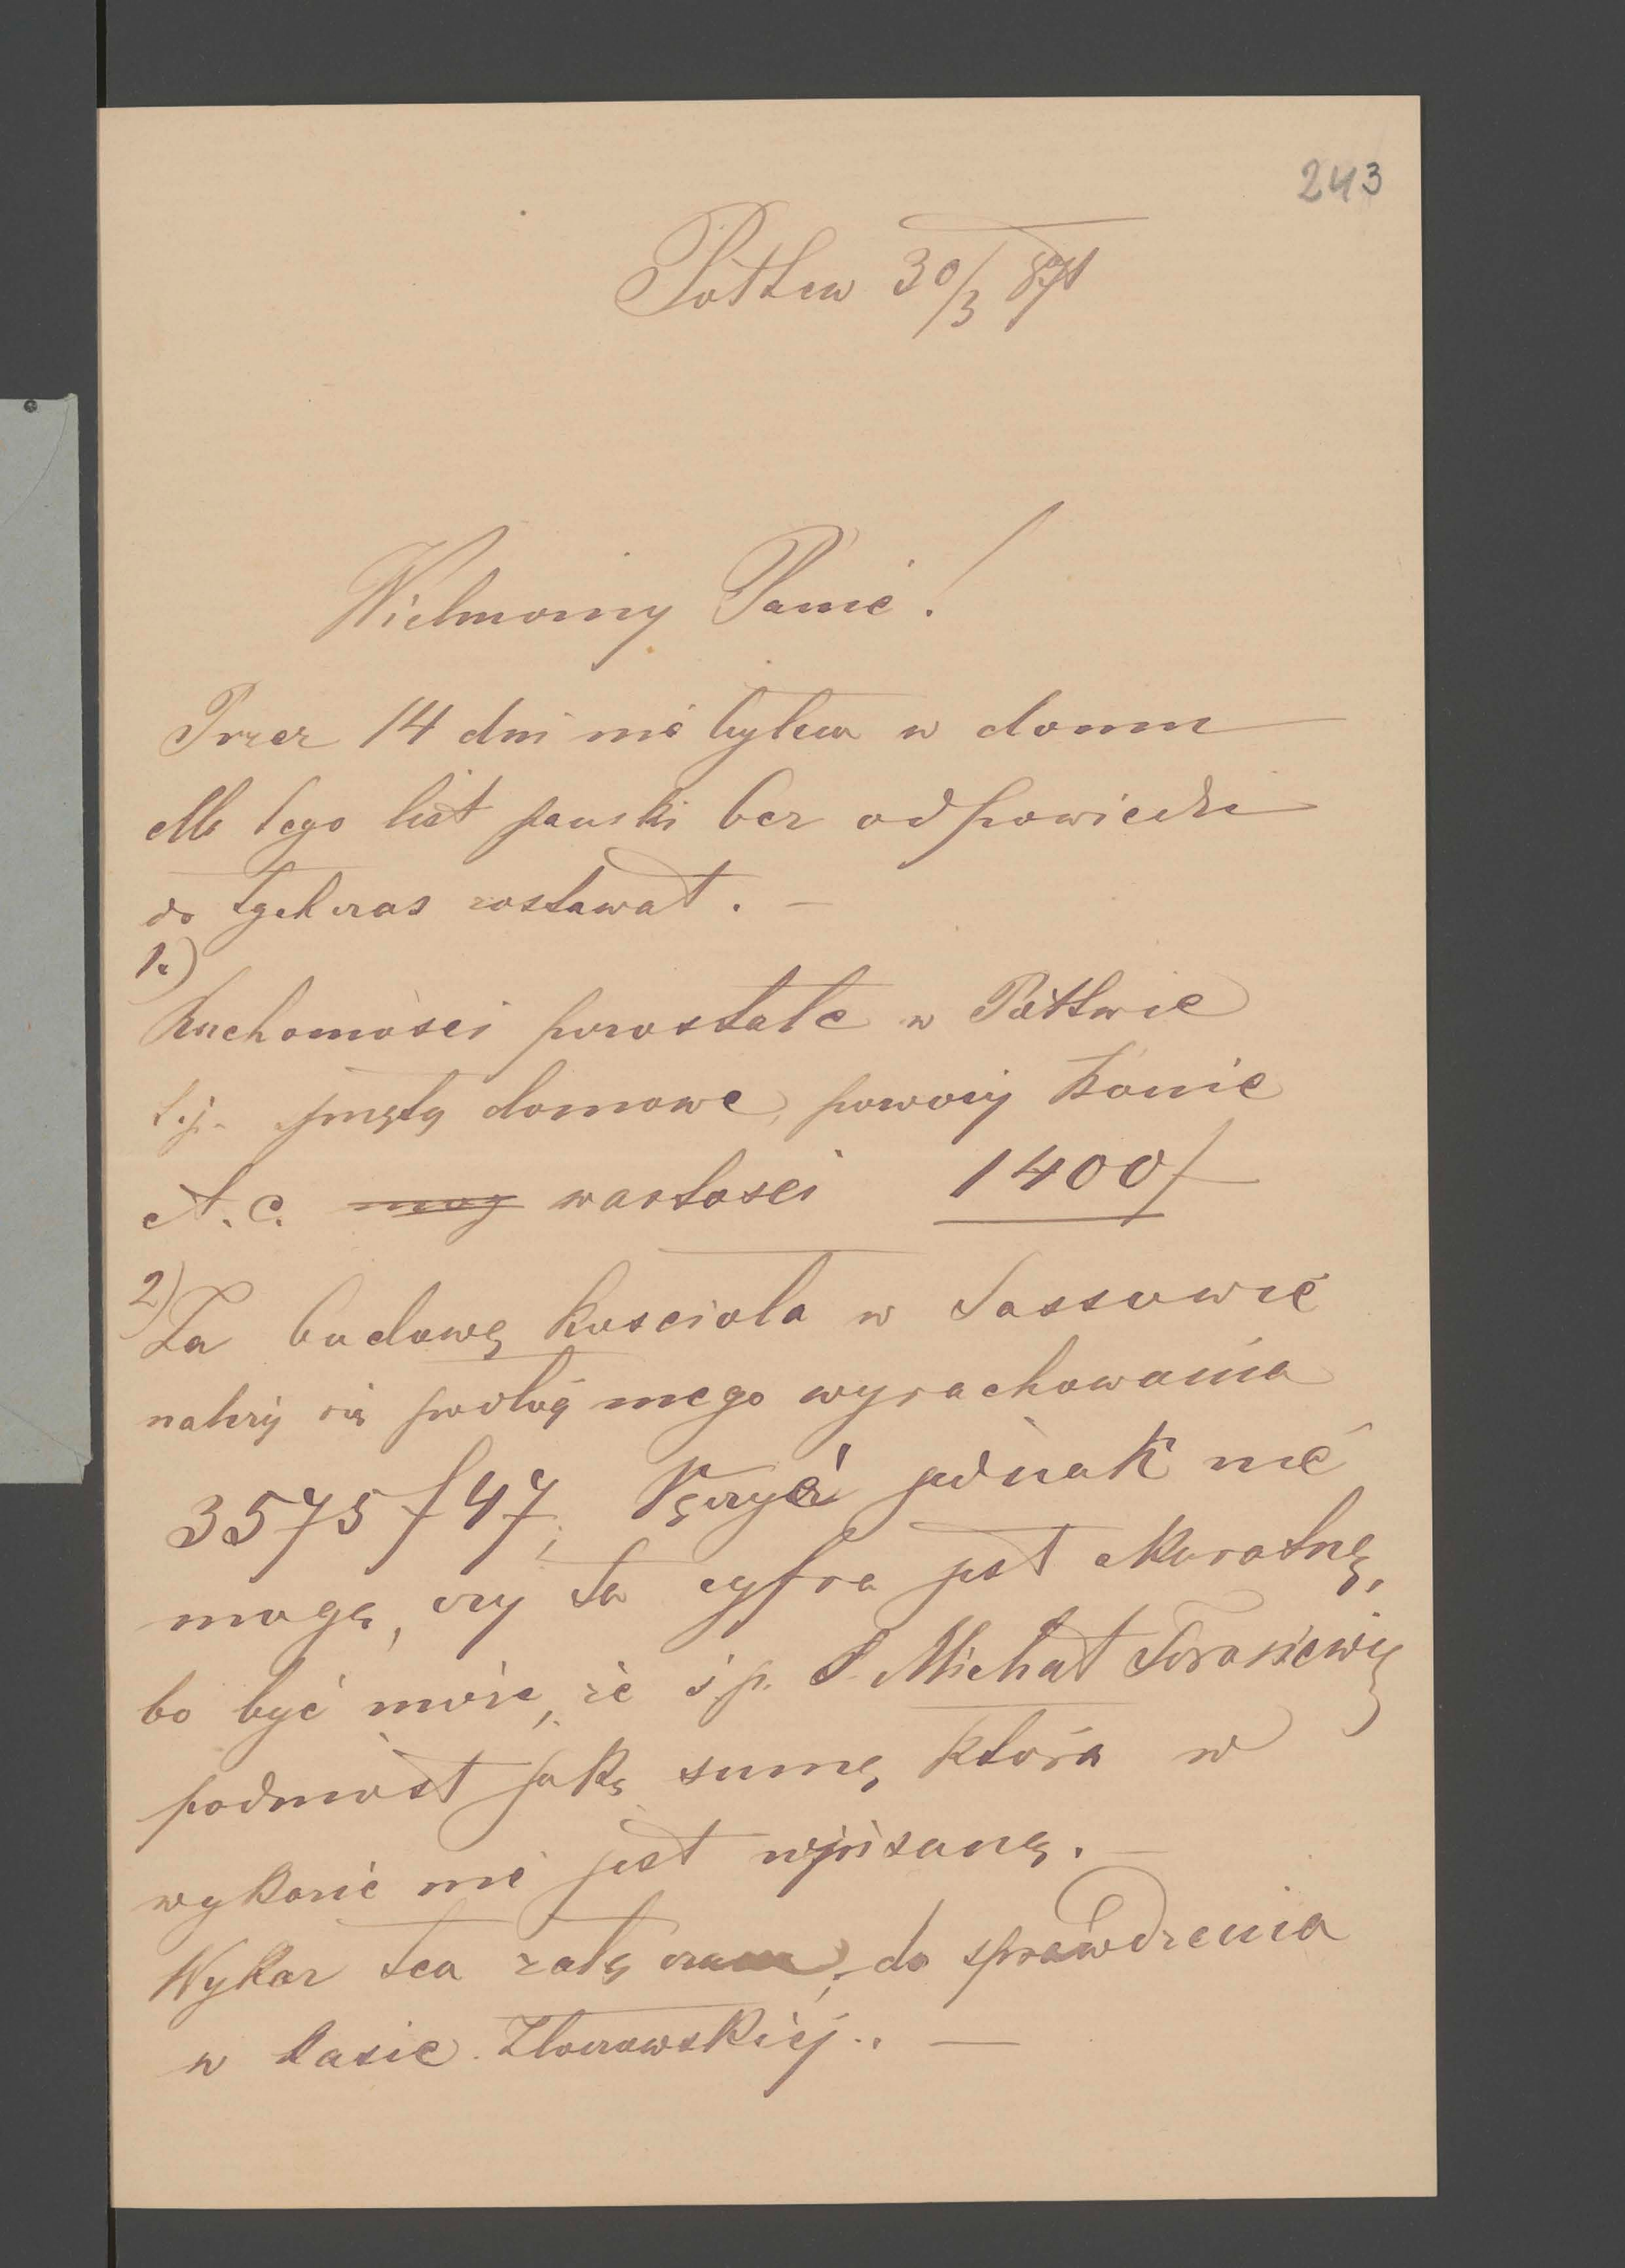 243
Pottew 30/3 871
Wielmożny Panie!
Przez 14 dni nie byłem w domu
dla tego list pański bez odpowiedzi
do tychczas zostawał. —
1.)
Ruchomości pozostałe w Pottwie
t.j. sprzęty domowe, powozy konie
A. c. mog wartości 1400f
2)
Za budowę kościoła w Sassowie
należy się podług mego wyrachowania
3575f47; Ręczyć jednak nie
mogę, czy ta cyfra jest akuratną,
bo być może, że ś p. S. Michał Torosiewicz
podniósł jaką sumę, która w
wykazie nie jest wpisaną. —
Wykaz ten załączam, do sprawdzenia
w kasie Złoczowskiej. —